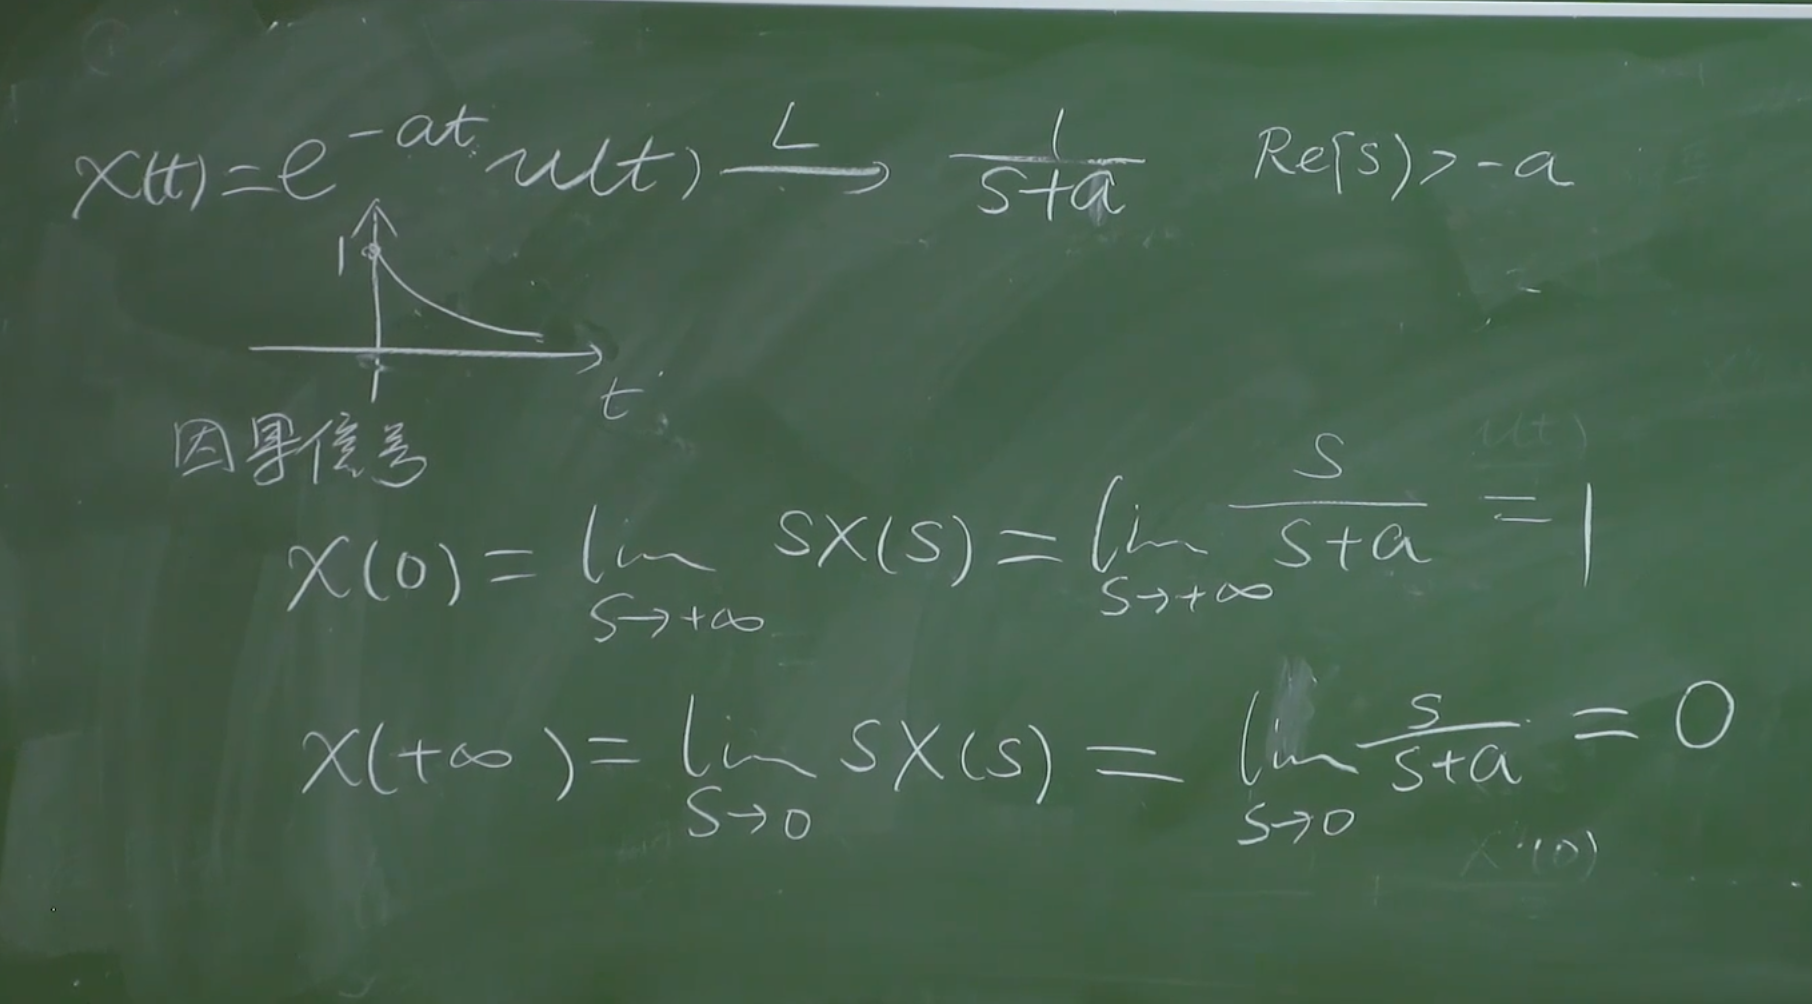 x(t)=e^{-at}u(t) \xrightarrow{L} \frac{1}{s+a} Re[s)>-a
1
t
因果信号
x(0)=\lim_{s→+∞} sX(s)=\lim_{s→+∞} \frac{s}{s+a}=1
x(+∞)=\lim_{s→0} sX(s)=\lim_{s→0} \frac{s}{s+a}=0